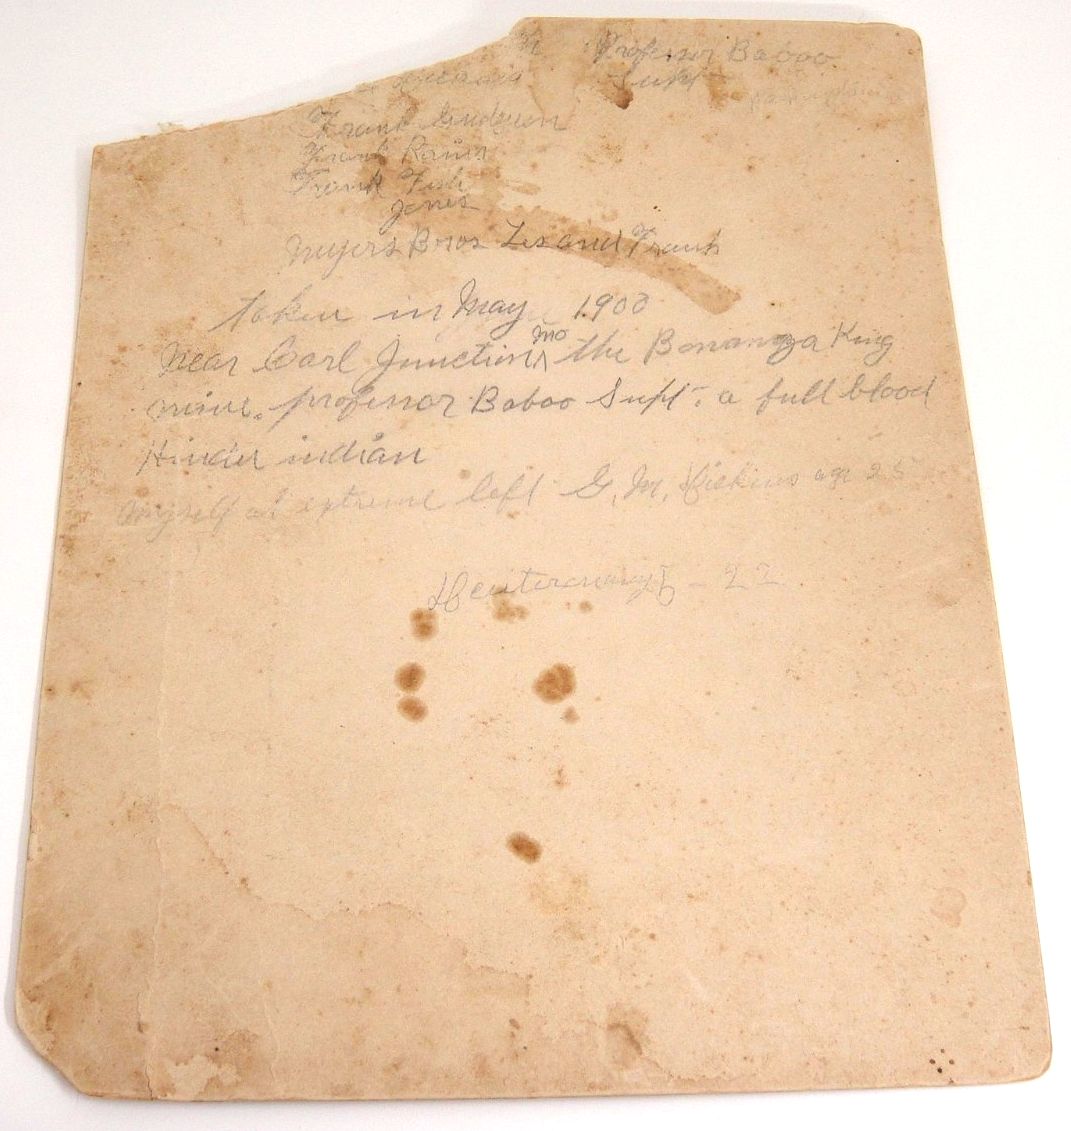 Professor Baboo
Supt
Frank Anderson
Frank Rains
Frank Fish
Jones
Myers Bros Les and Frank
taken in May 1900
Near Carl Junction Mo the Bonanza King
mine. professor Baboo Supt. a full blood
Hinder indian
Myself at extreme left G. M. Hickins age 25
5 - 22